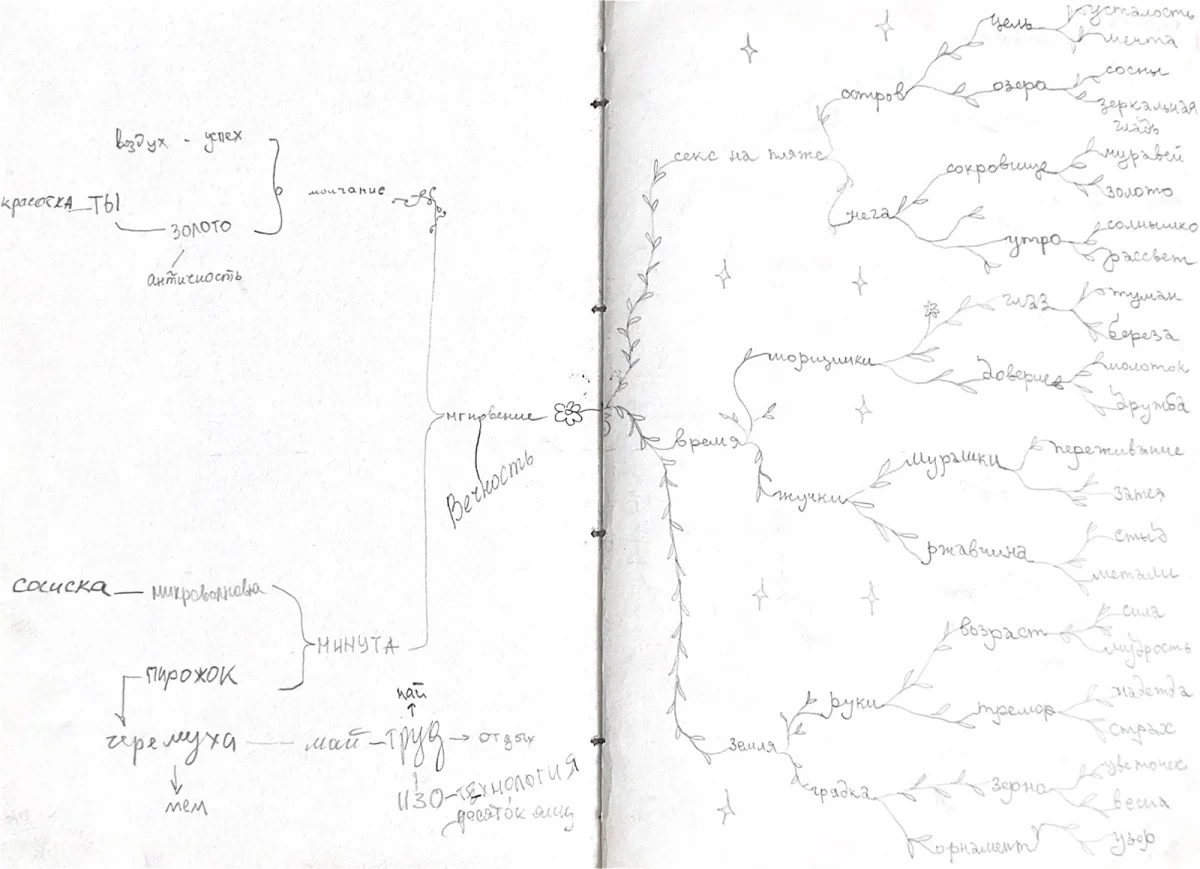 воздух - успех
красотка - ТЫ
золото
античность
молчание
мгновение
Вечность
сосиска - микроволновка
МИНУТА
пирожок
черемуха - май - труд → отдых
пай
мем
ИЗО - ТЕХНОЛОГИЯ
десяток яиц
секс на пляже
остров
цель
усталость
мечта
озеро
сосны
зеркальная
гладь
нега
сокровище
муравей
золото
утро
солнышко
рассвет
время
морщинки
глаз
туман
береза
доверие
молоток
дружба
жучки
мурашки
переживание
затея
ржавчина
стыд
металл
земля
руки
возраст
сила
мудрость
тремор
надежда
страх
грядка
зерно
цветочек
весна
орнамент
узор